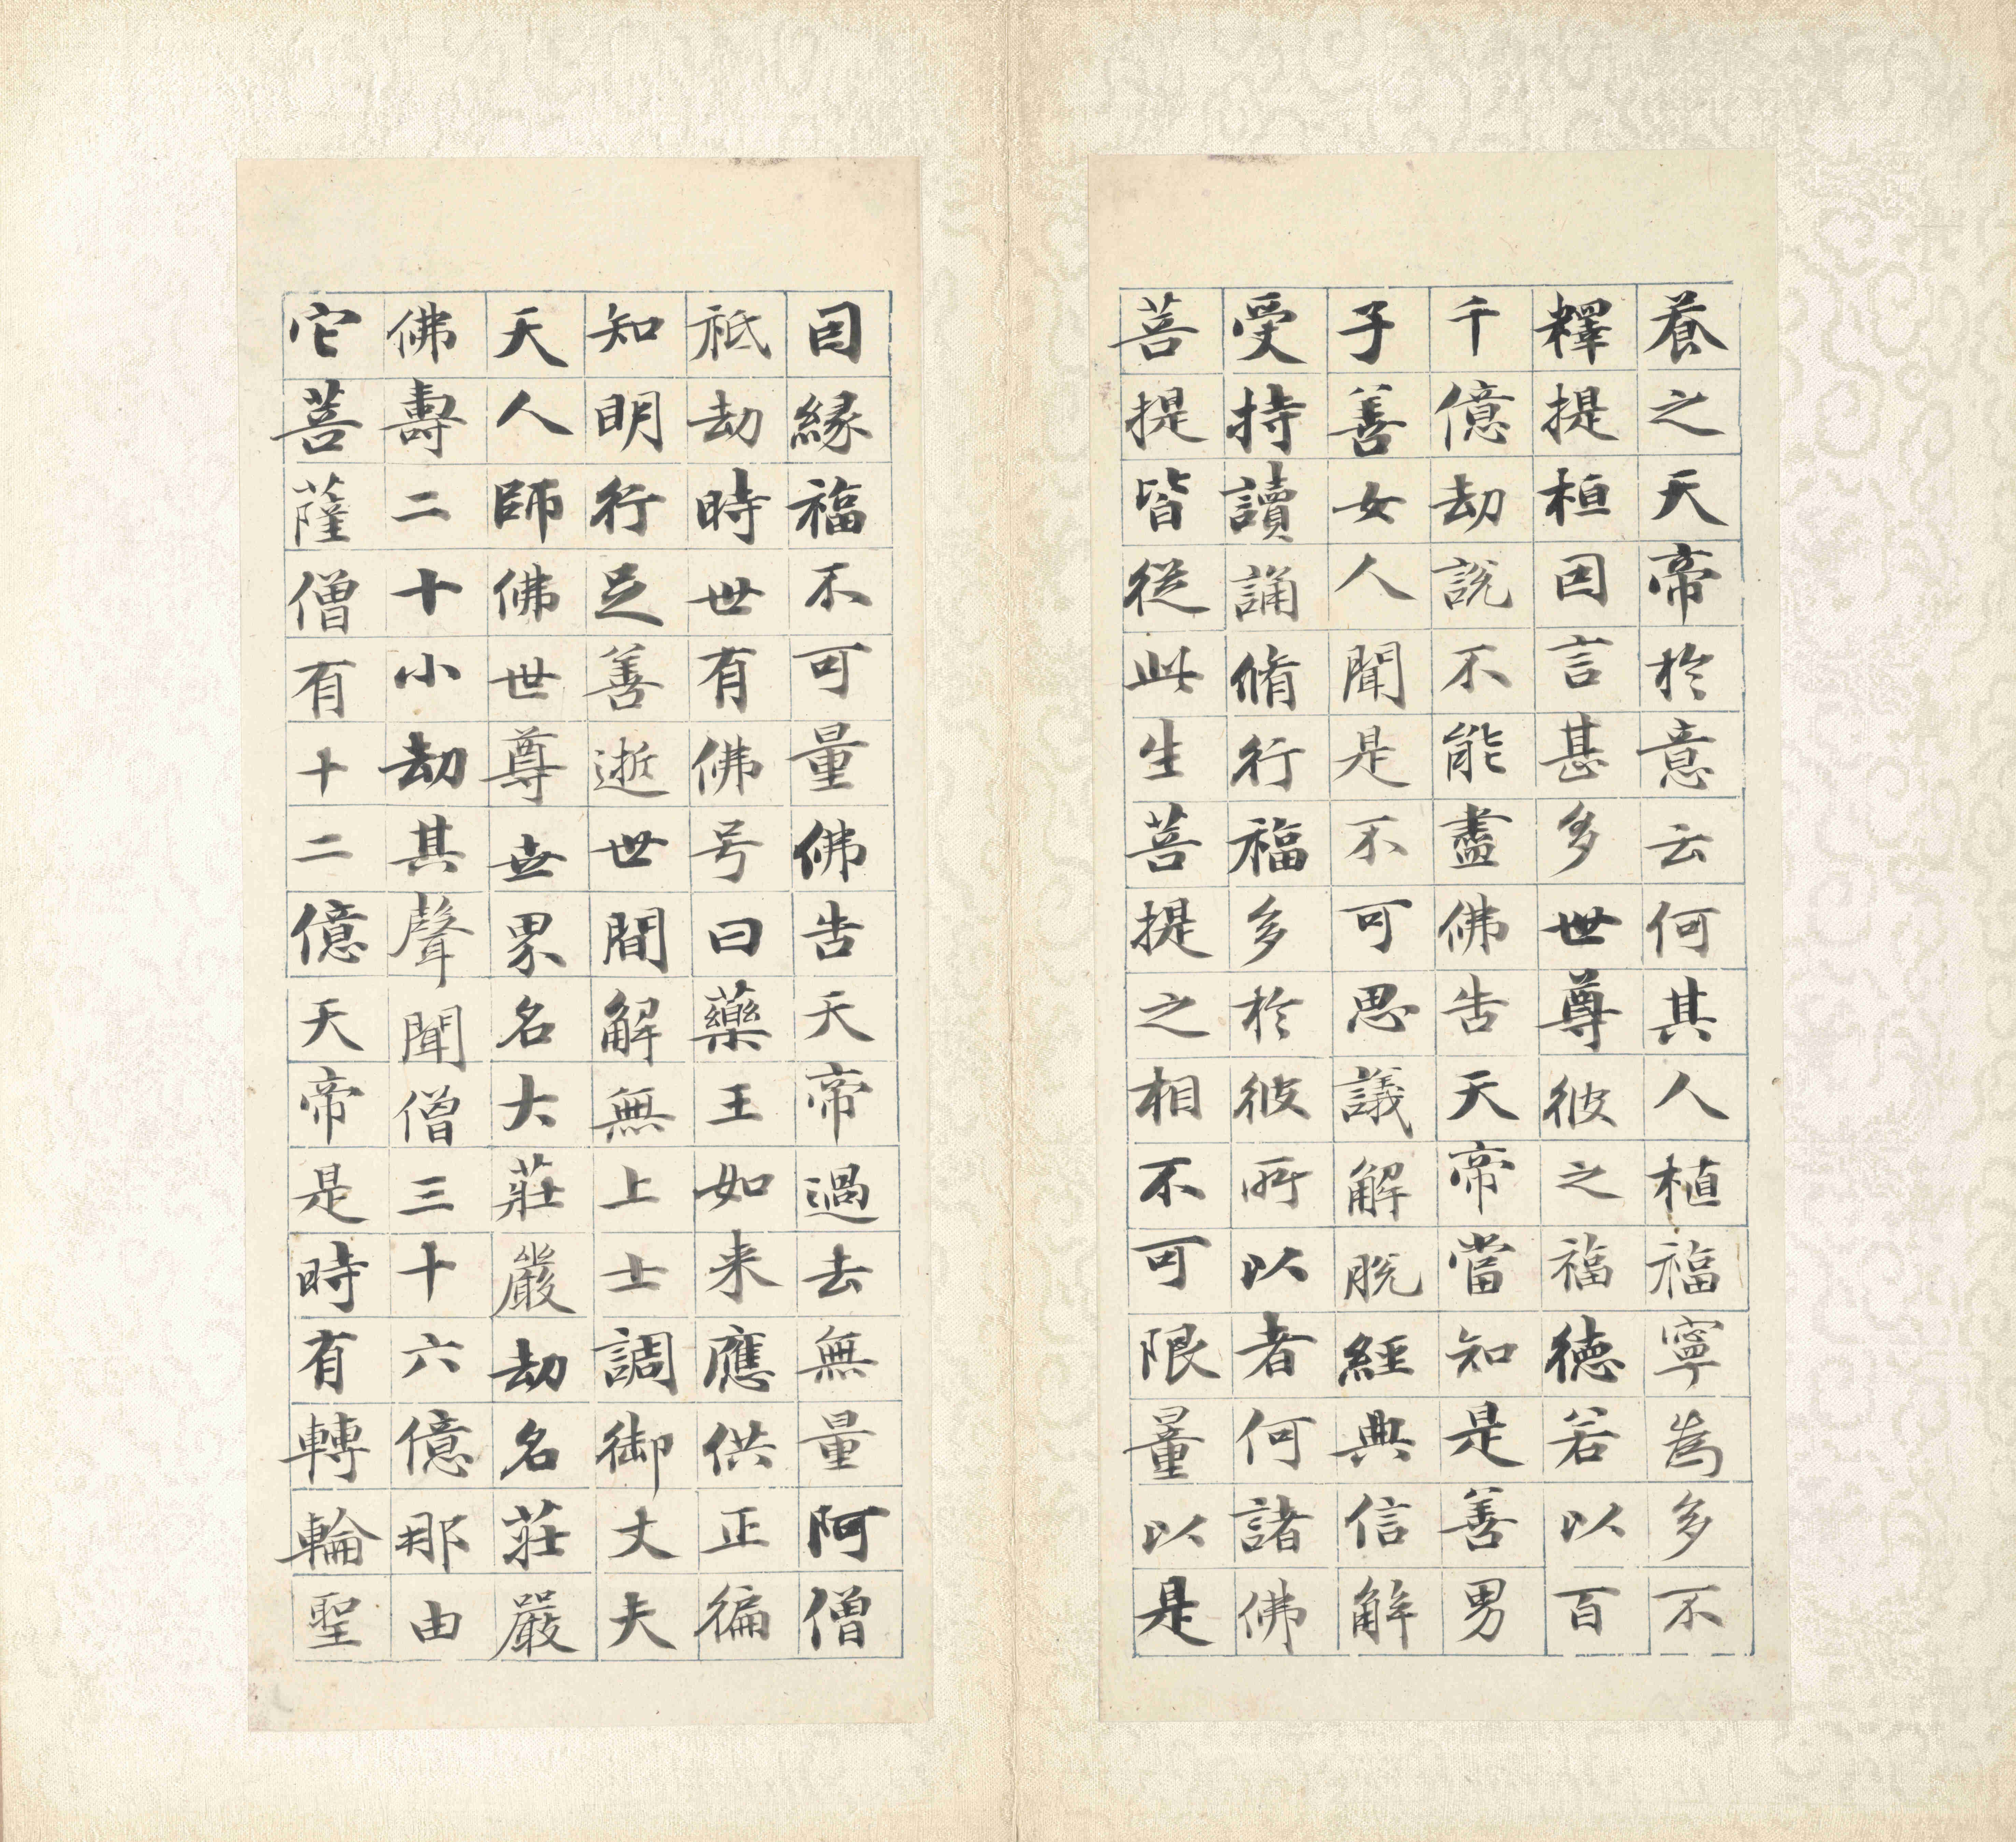 養之天帝於意云何其人植福寧為多不
釋提桓因言甚多世尊彼之福德若以百
千億劫說不能盡佛告天帝當知是善男
子善女人聞是不可思議解脫經典信解
受持讀誦脩行福多於彼所以者何諸佛
菩提皆從此生菩提之相不可限量以是
因緣福不可量佛告天帝過去無量阿僧
祇劫時世有佛号曰藥王如来應供正徧
知明行足善逝世間解無上士調御丈夫
天人師佛世尊世界名大莊嚴劫名莊嚴
佛壽二十小劫其聲聞僧三十六億那由
它菩薩僧有十二億天帝是時有轉輪聖